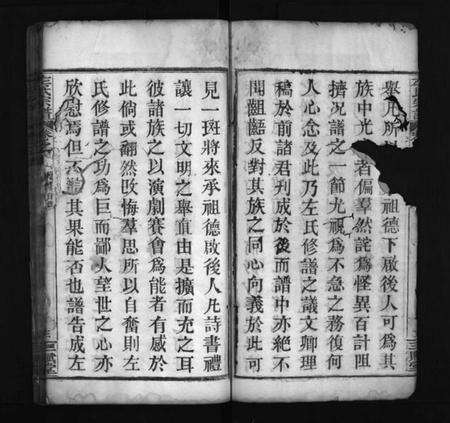 舉凡所
祖德下啟後人可為其
族中光
者偏羣然詫為怪異百計阻
擠况譜之一節尤視為不急之務復何
人心念及此乃左氏修譜之議文卿理
稿於前諸君刋成於後而譜中亦絕不
聞齟齬反對其族之同心向義於此可
見一斑將來承祖德啟後人凡詩書禮
讓一切文明之舉直由是擴而充之耳
彼諸族之以演劇賽會為能者有感於
此倘或翻然改悔羣思所以自奮則左
氏修譜之功為巨而鄙人望世之心亦
欣慰焉但不
其果能否也譜告成左